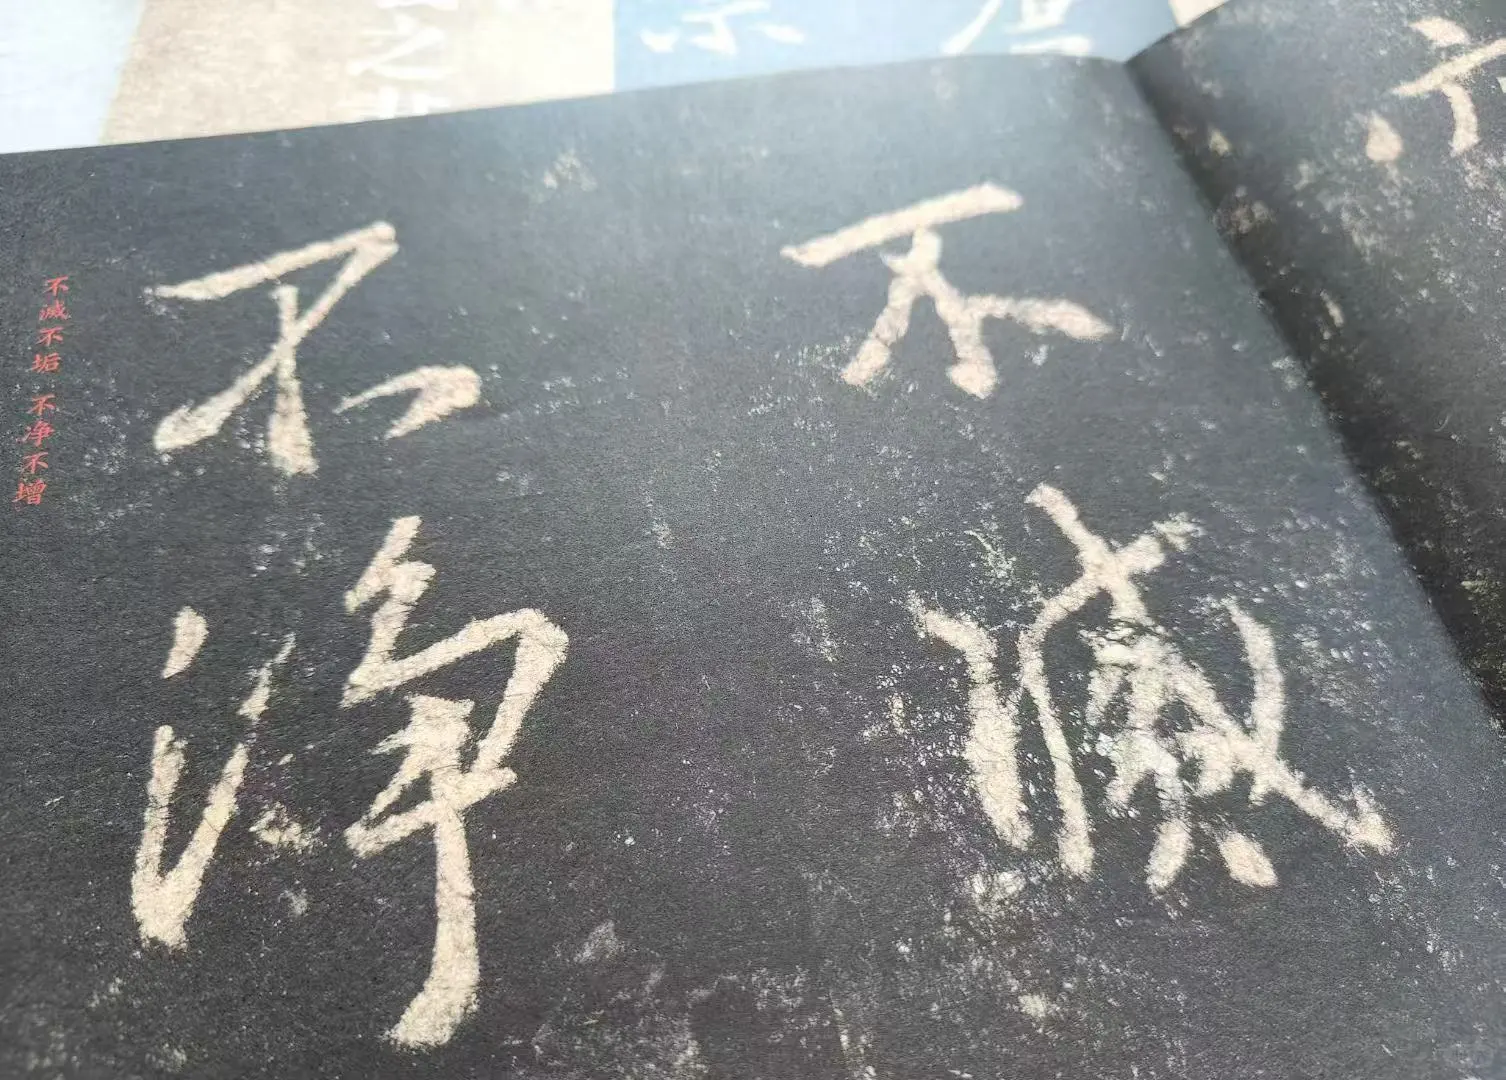 不滅
不淨
不滅不垢 不净不增